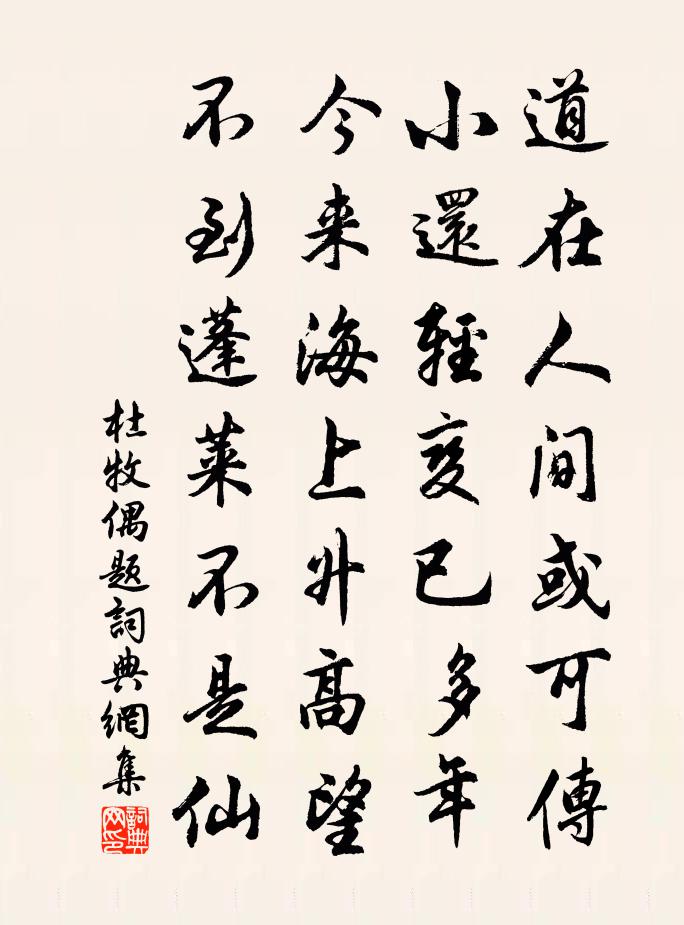 道在人間或可傳
小還輕变已多年
今来海上升高望
不到蓬莱不是仙
杜牧偶题詞典網集
詞典網印